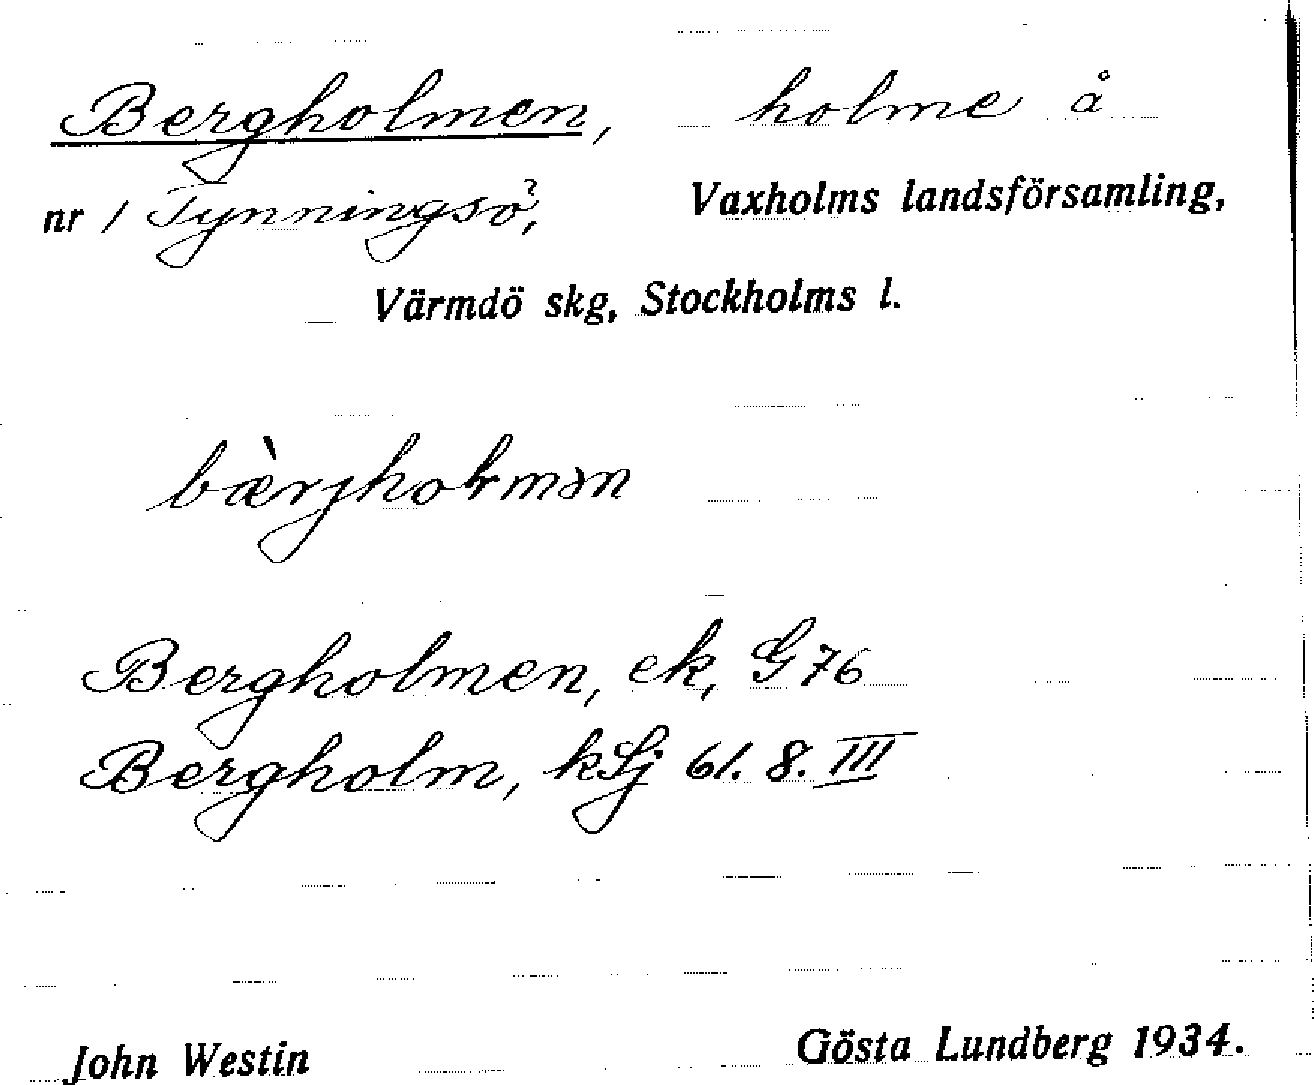 Bergholmen, holme å
nr 1 Tynningsö, Vaxholms landsförsamling,
Värmdö skg, Stockholms l.
bæ̀rjholmən
Bergholmen, ek, G 76
Bergholm, kSj 61. 8. III
John Westin Gösta Lundberg 1934.